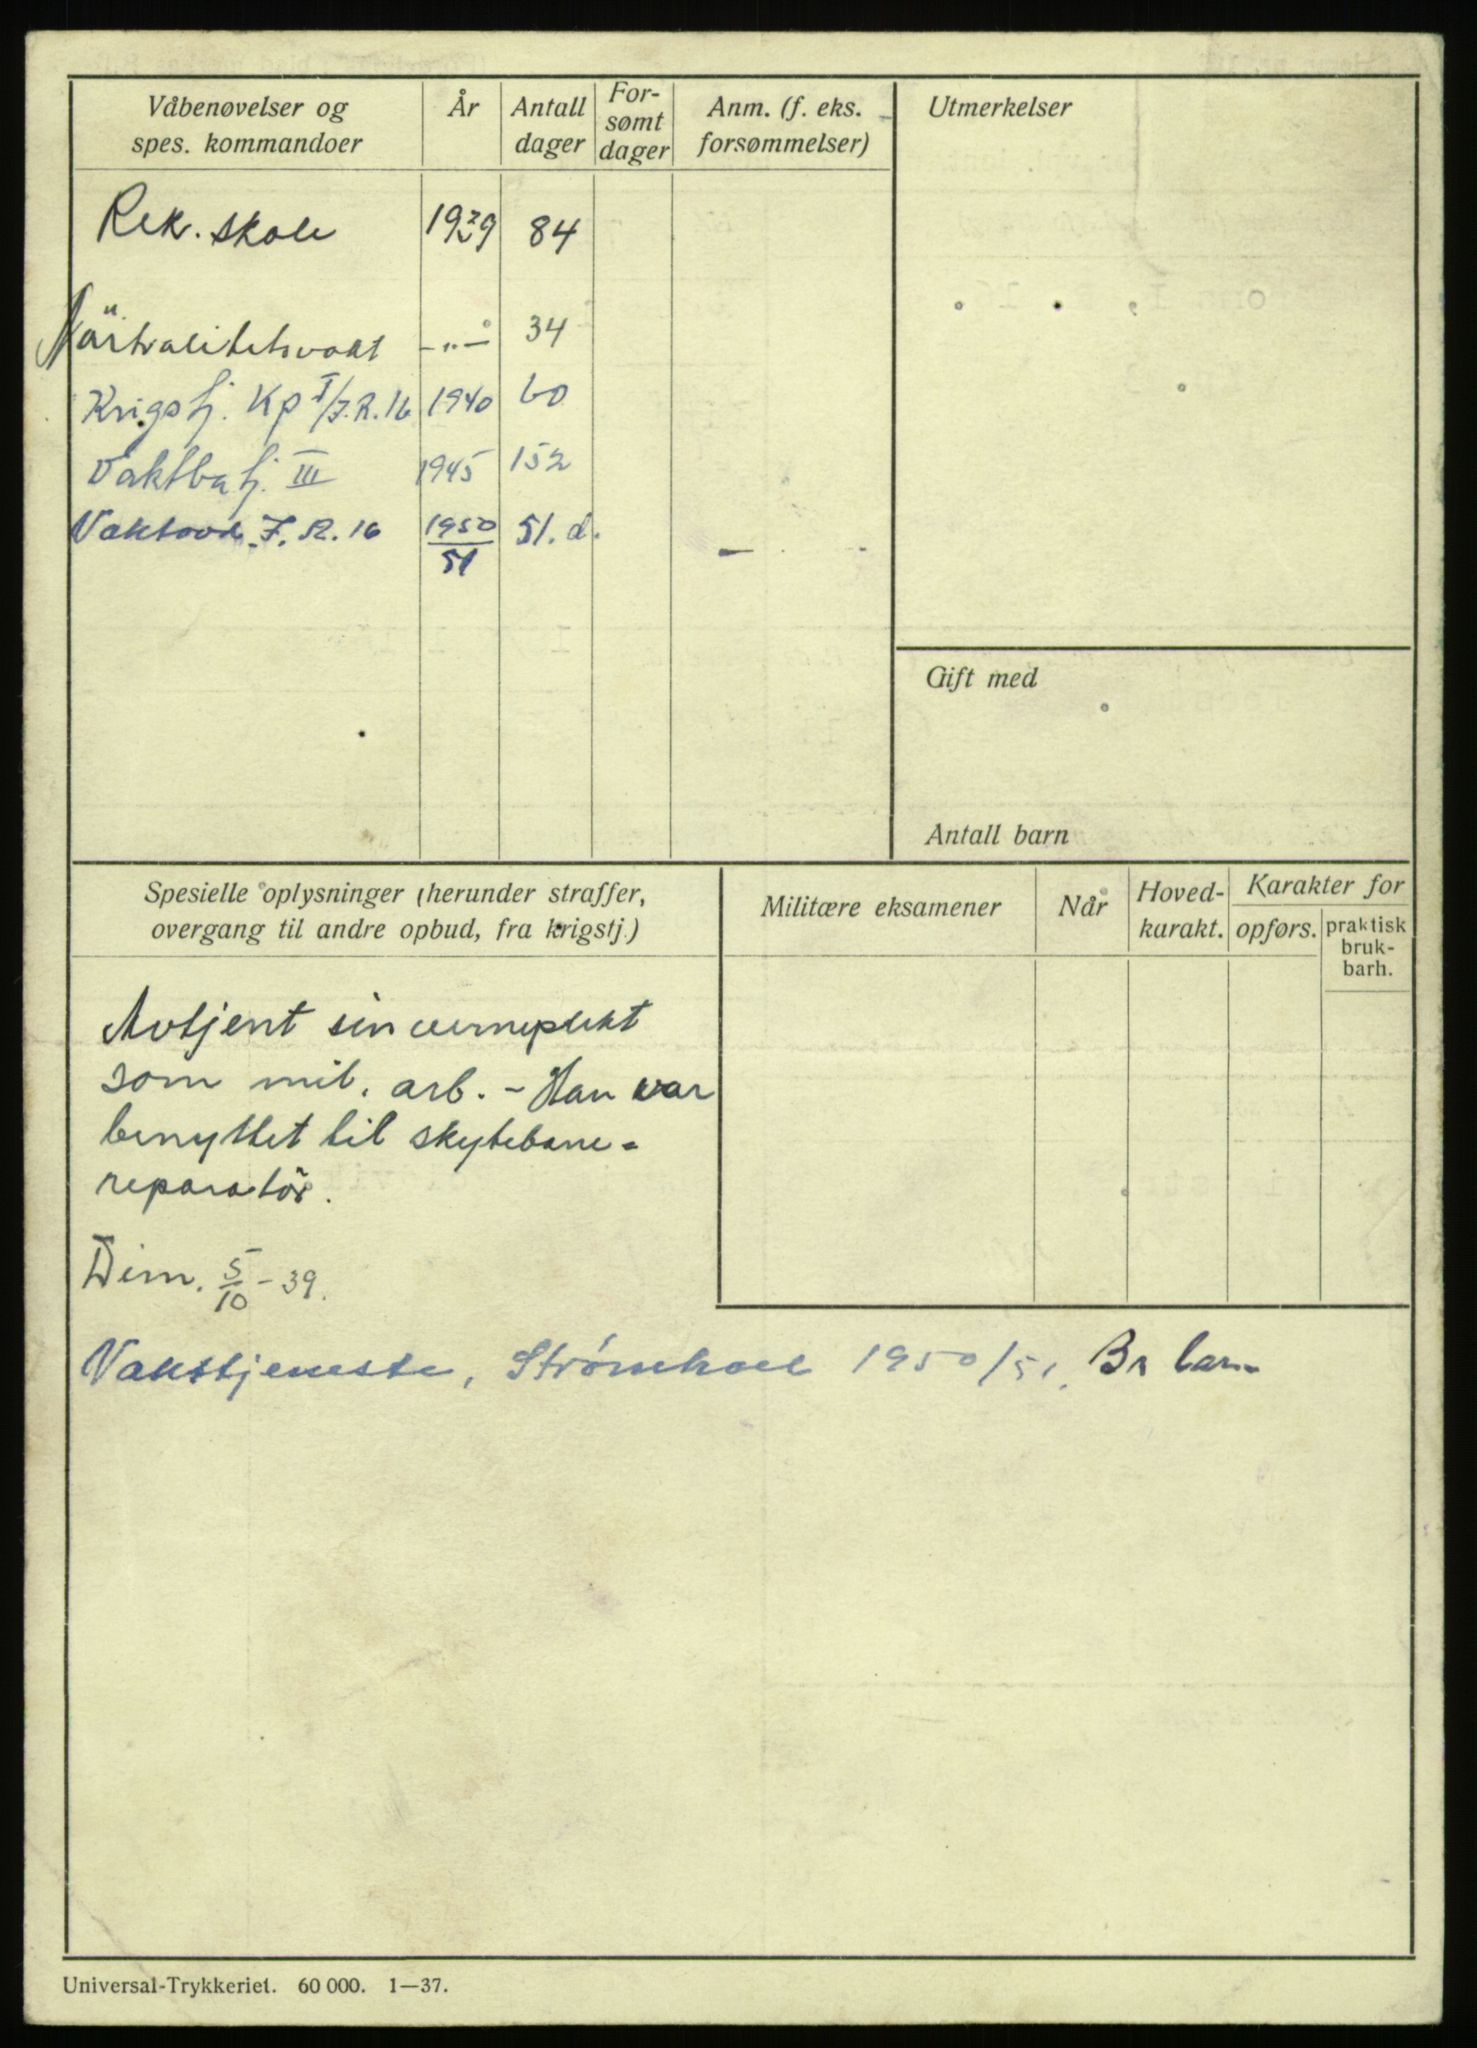 Våbenøvelser og
spes. kommandoer
År
Antall
dager
For-
sømt
dager
Anm. (f. eks.
forsømmelser)
Utmerkelser
Rek. skole 1939 84
Nöitralitetsvakt —"— 34
Krigstj. Kp I/J.R.16 1940 60
Vaktbatj. III 1945 152
Vaktavd. I.R. 16 1950/51 51. d. —
Gift med
Antall barn
Spesielle oplysninger (herunder straffer,
overgang til andre opbud, fra krigstj.)
Militære eksamener
Når
Hoved-
karakt.
Karakter for
opførs.
praktisk
bruk-
barh.
Avtjent sin verneplikt
som mil. arb. - Han var
benyttet til skytebane-
reparatör.
Dim. 5/10 - 39.
Vakttjeneste, 1950/51.
Universal-Trykkeriet. 60 000. 1—37.